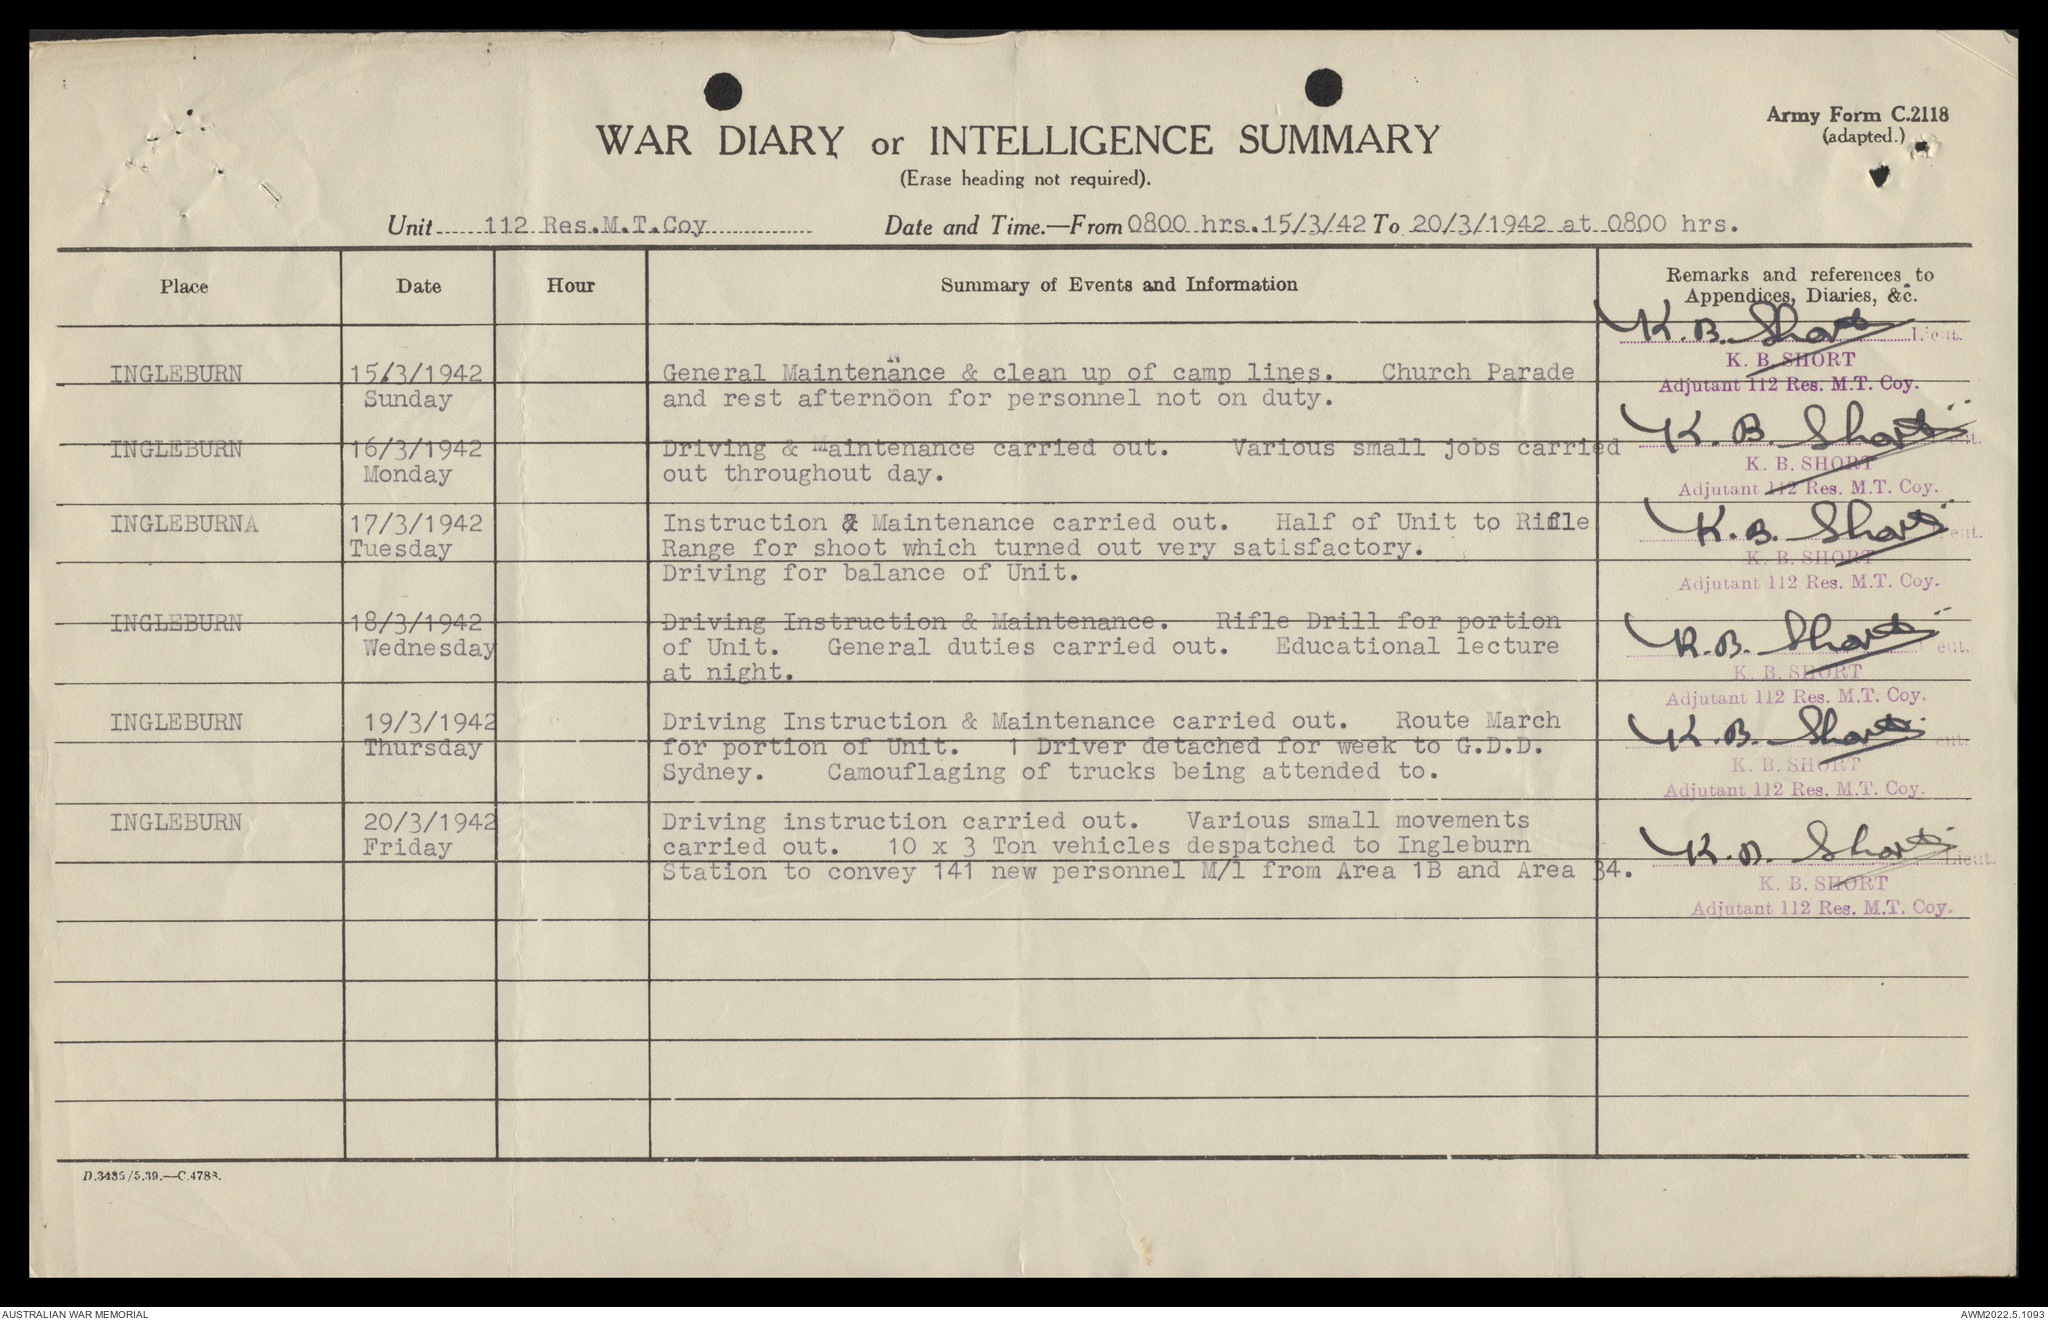 Army Form C.2118
(adapted.)
WAR DIARY or INTELLIGENCE SUMMARY
(Erase heading not required).
Unit 112 Res.M.T.Coy Date and Time.—From 0800 hrs. 15/3/42 To 20/3/1942 at 0800 hrs.
Place Date Hour Summary of Events and Information Remarks and references to
Appendices, Diaries, &c.
K. B. Short Lieut.
K. B. SHORT
INGLEBURN 15/3/1942 General Maintenance & clean up of camp lines. Church Parade
Adjutant 112 Res. M.T. Coy.
Sunday and rest afternoon for personnel not on duty.
K. B. Short
INGLEBURN 16/3/1942 Driving & Maintenance carried out. Various small jobs carried
K. B. SHORT
Monday out throughout day.
Adjutant 112 Res. M.T. Coy.
INGLEBURNA 17/3/1942 Instruction & Maintenance carried out. Half of Unit to Rifle
K. B. Short
Tuesday Range for shoot which turned out very satisfactory.
K. B. SHORT
Driving for balance of Unit.
Adjutant 112 Res. M.T. Coy.
INGLEBURN 18/3/1942 Driving Instruction & Maintenance. Rifle Drill for portion
K. B. Short
Wednesday of Unit. General duties carried out. Educational lecture
at night.
K. B. SHORT
Adjutant 112 Res. M.T. Coy.
INGLEBURN 19/3/1942 Driving Instruction & Maintenance carried out. Route March
K. B. Short
Thursday for portion of Unit. 1 Driver detached for week to G.D.D.
Sydney. Camouflaging of trucks being attended to.
K. B. SHORT
Adjutant 112 Res. M.T. Coy.
INGLEBURN 20/3/1942 Driving instruction carried out. Various small movements
Friday carried out. 10 x 3 Ton vehicles despatched to Ingleburn
K. B. Short Lieut.
Station to convey 141 new personnel M/l from Area 1B and Area 34.
K. B. SHORT
Adjutant 112 Res. M.T. Coy.
D.3435/5.39.—C.4788.
AUSTRALIAN WAR MEMORIAL AWM2022.5.1093